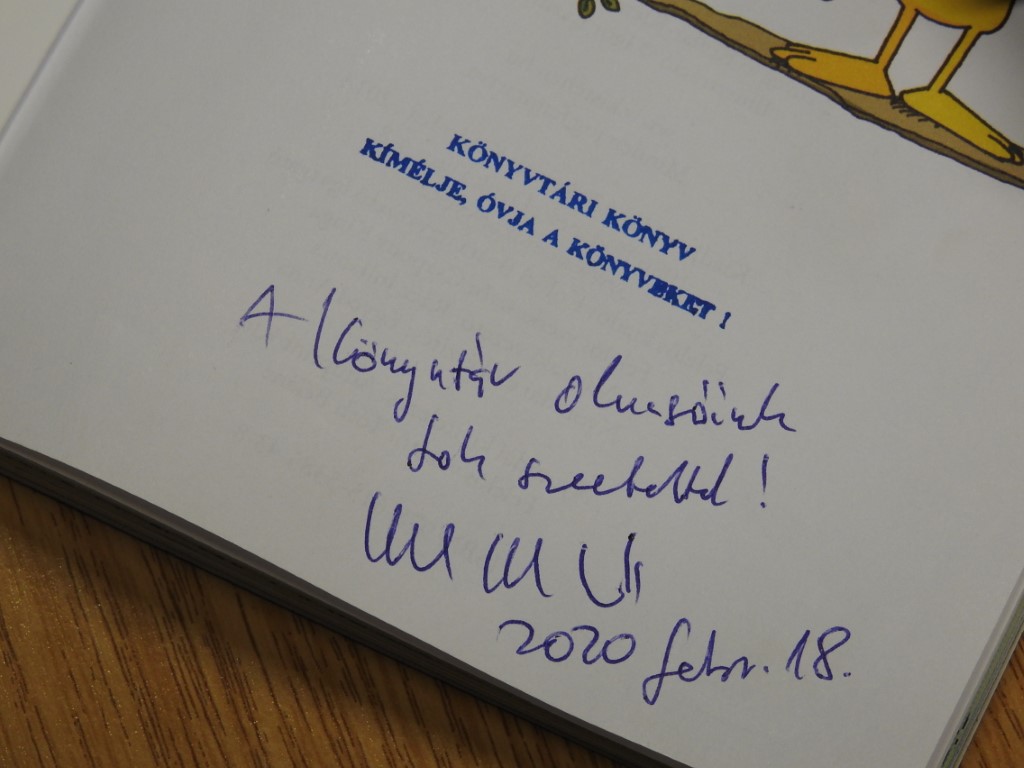 KÖNYVTÁRI KÖNYV
KÍMÉLJE, ÓVJA A KÖNYVEKET !
A Könyvtár olvasóinak
sok szeretettel !
2020 febr. 18.